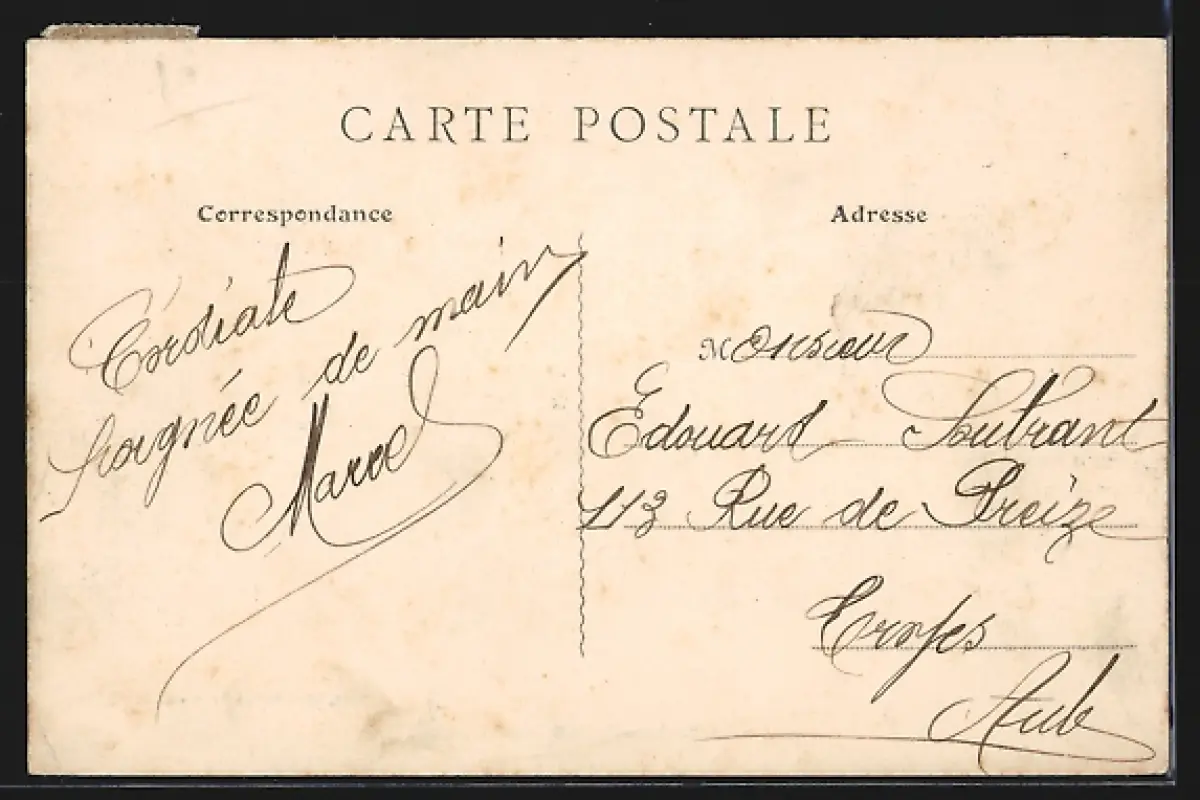 CARTE POSTALE
Correspondance
Cordiale
Poignée de main
Marcel
Adresse
Monsieur
Edouard Soutrant
113 Rue de Preize
Troyes
Aube